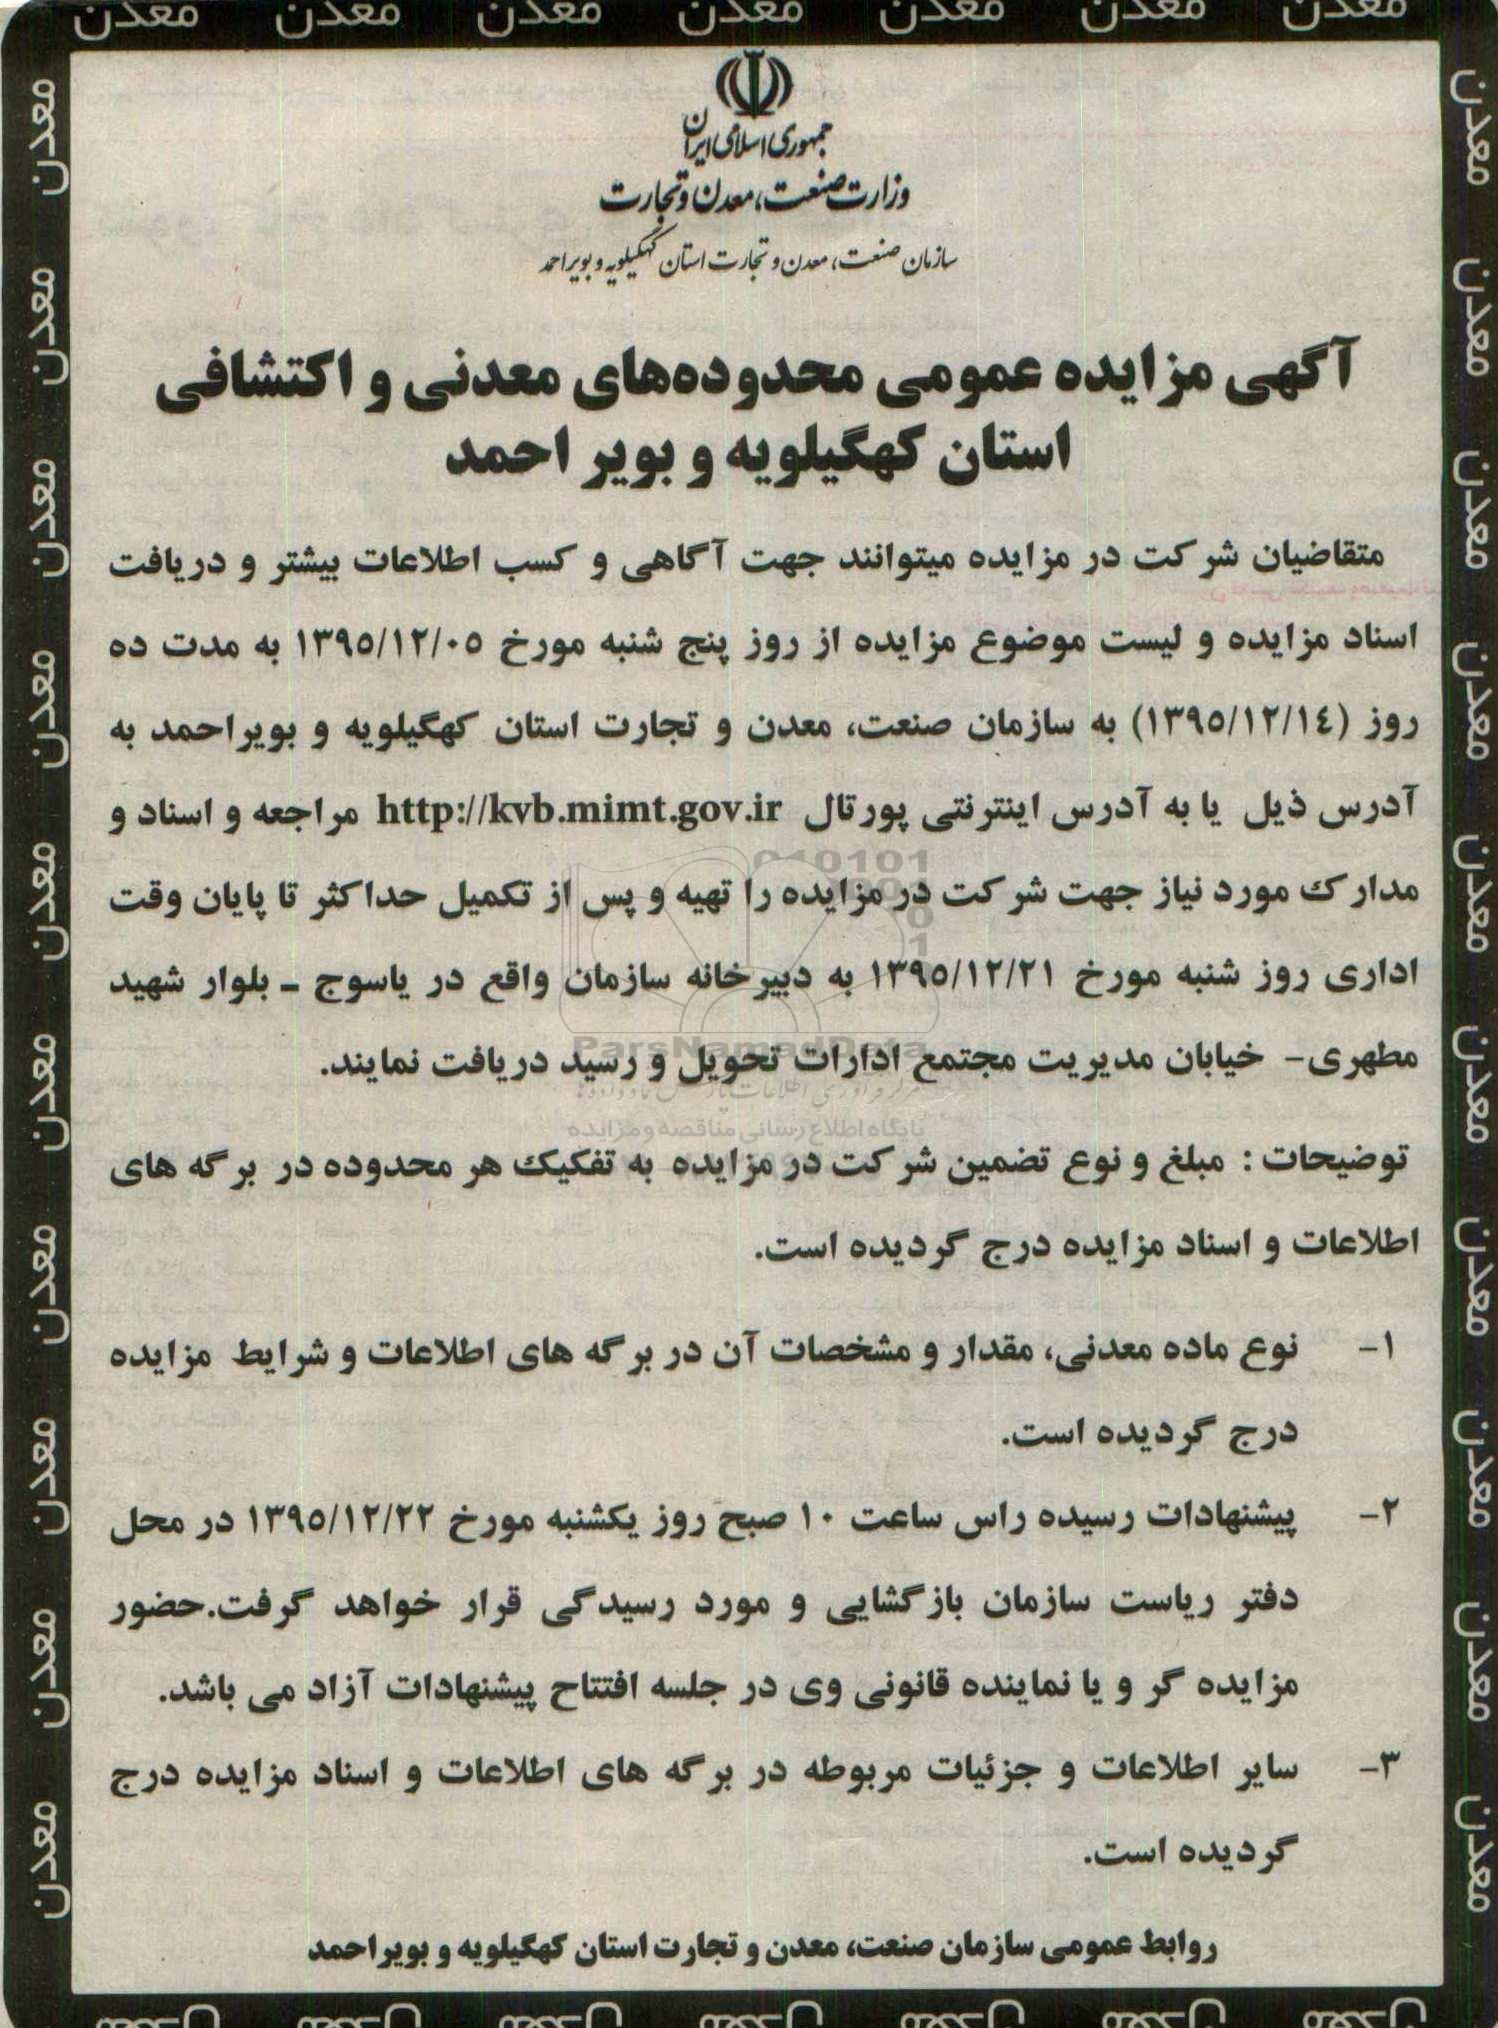 معدن معدن معدن معدن معدن معدن معدن
جمهوری اسلامی ایران
وزارت صنعت، معدن و تجارت
سازمان صنعت، معدن و تجارت استان کهگیلویه و بویراحمد
آگهی مزایده عمومی محدوده‌های معدنی و اکتشافی
استان کهگیلویه و بویر احمد
متقاضیان شرکت در مزایده میتوانند جهت آگاهی و کسب اطلاعات بیشتر و دریافت
اسناد مزایده و لیست موضوع مزایده از روز پنج شنبه مورخ ۱۳۹۵/۱۲/۰۵ به مدت ده
روز (۱۳۹۵/۱۲/۱٤) به سازمان صنعت، معدن و تجارت استان کهگیلویه و بویراحمد به
آدرس ذیل یا به آدرس اینترنتی پورتال http://kvb.mimt.gov.ir مراجعه و اسناد و
مدارک مورد نیاز جهت شرکت در مزایده را تهیه و پس از تکمیل حداکثر تا پایان وقت
اداری روز شنبه مورخ ۱۳۹۵/۱۲/۲۱ به دبیرخانه سازمان واقع در یاسوج ـ بلوار شهید
مطهری- خیابان مدیریت مجتمع ادارات تحویل و رسید دریافت نمایند.
ParsNamadData
پایگاه اطلاع رسانی مناقصه و مزایده
توضیحات : مبلغ و نوع تضمین شرکت در مزایده به تفکیک هر محدوده در برگه های
اطلاعات و اسناد مزایده درج گردیده است.
۱- نوع ماده معدنی، مقدار و مشخصات آن در برگه های اطلاعات و شرایط مزایده
درج گردیده است.
۲- پیشنهادات رسیده راس ساعت ۱۰ صبح روز یکشنبه مورخ ۱۳۹۵/۱۲/۲۲ در محل
دفتر ریاست سازمان بازگشایی و مورد رسیدگی قرار خواهد گرفت.حضور
مزایده گر و یا نماینده قانونی وی در جلسه افتتاح پیشنهادات آزاد می باشد.
۳- سایر اطلاعات و جزئیات مربوطه در برگه های اطلاعات و اسناد مزایده درج
گردیده است.
روابط عمومی سازمان صنعت، معدن و تجارت استان کهگیلویه و بویراحمد